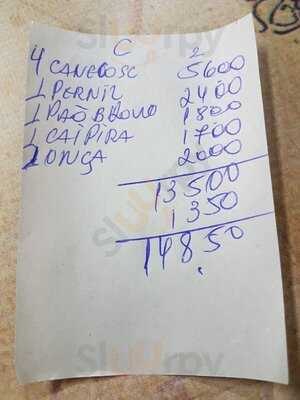 C 2
4 CANECOSC 5600
1 PERNIL 2400
1 PAO BRONO 1800
1 CAIPIRA 1700
2 ONÇA 2000
13500
1350
14850
sluurpy